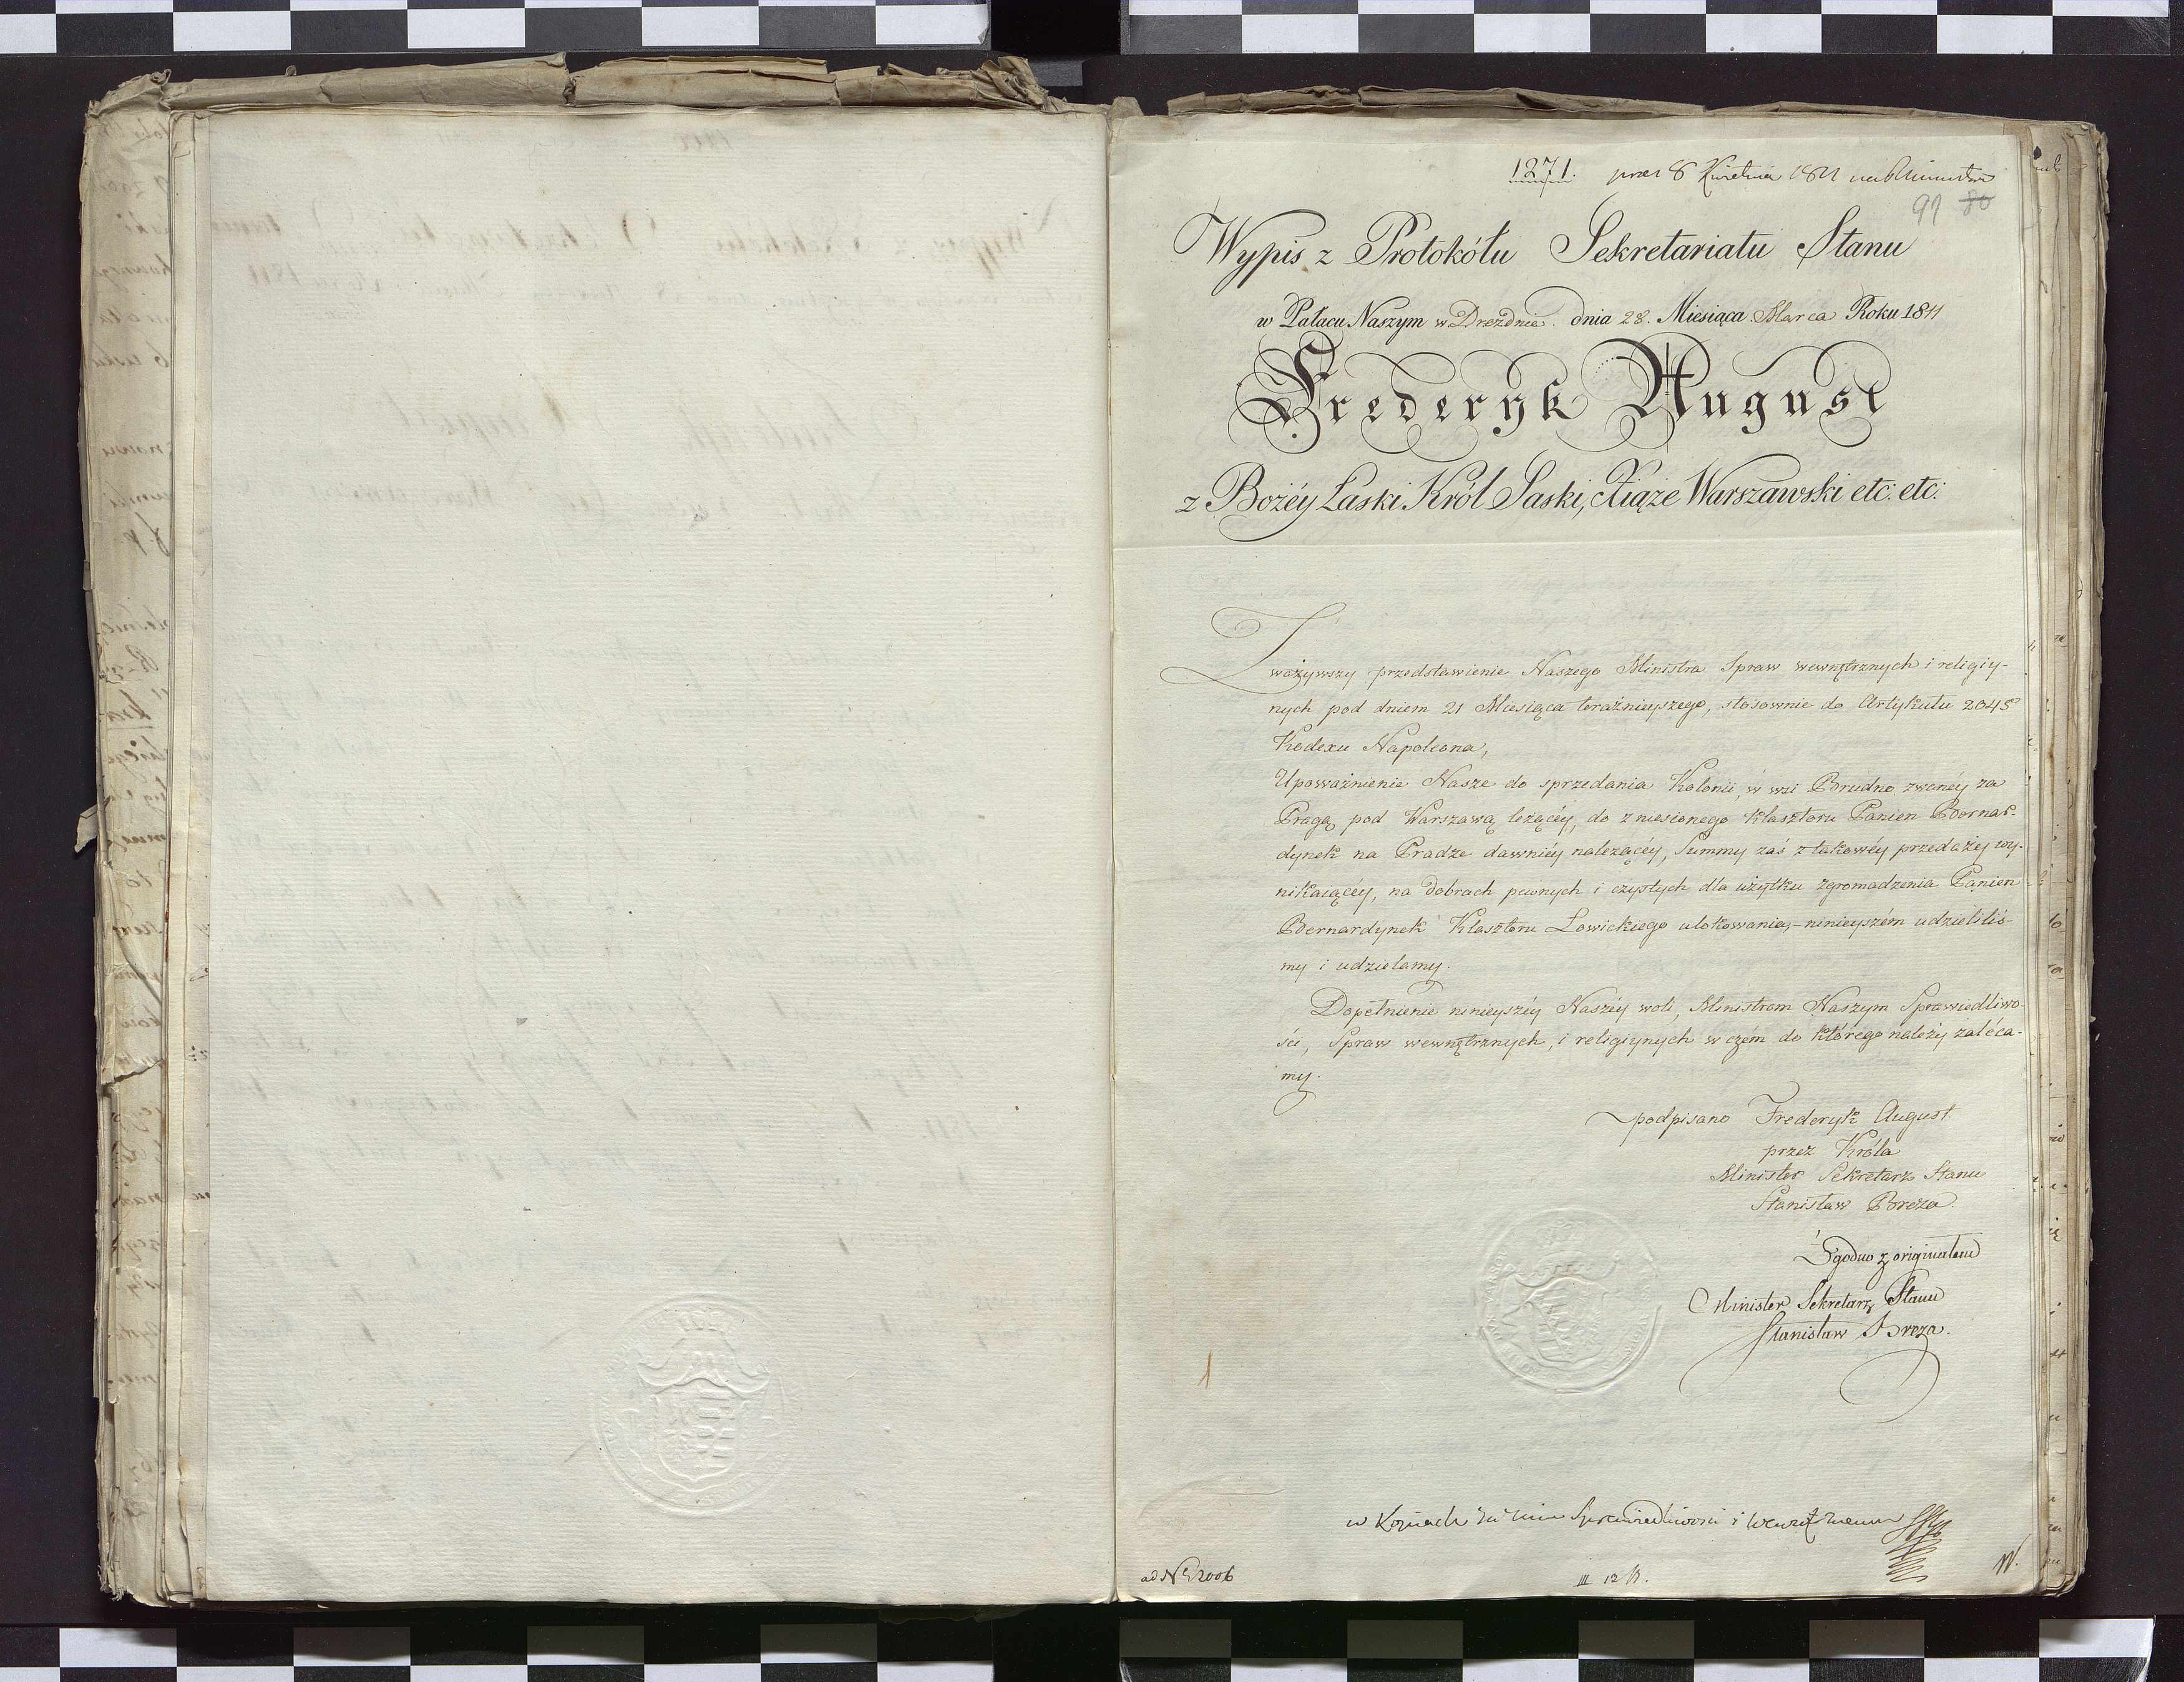 1271. 8 Kwietnia 1811
91 80
Wypis z Protokółu Sekretariatu Stanu
w Pałacu Naszym w Dreznie. dnia 28. Miesiąca Marca Roku 1811
Frederyk August
z Bożéy Łaski Król Saski, Xiąże Warszawski etc: etc:
Zważywszy przedstawienie Naszego Ministra Spraw wewnętrznych i religiy-
nych pod dniem 21 Miesiąca teraźnieyszego, stosownie do Artykułu 2045
Kodexu Napoleona,
Upoważnienie Nasze do sprzedania Kolonii, w wsi Brudno zwanéy za
Pragą pod Warszawą leżącéy, do zniesionego Klasztoru Panien Bernar-
dynek na Pradze dawniéy należącéy, Summy zaś z takowéy przedaży wy-
nikaiącéy, na dobrach pewnych i czystych dla użytku zgromadzenia Panien
Bernardynek Klasztoru Łowickiego ulokowania, - ninieyszém udzieliliś-
my i udzielamy.
Dopełnienie ninieyszéy Naszéy woli, Ministrom Naszym Sprawiedliwo-
ści, Spraw wewnętrznych, i religiynych w czém do którego należy zaléca-
my.
podpisano Frederyk August
przez Króla
Minister Sekretarz Stanu
Stanisław Breza.
Zgodno z originałem
Minister Sekretarz Stanu
Stanisław Breza.
w Kopiach Sprawiedliwości i
ad N 2006
III 12 B.
W.